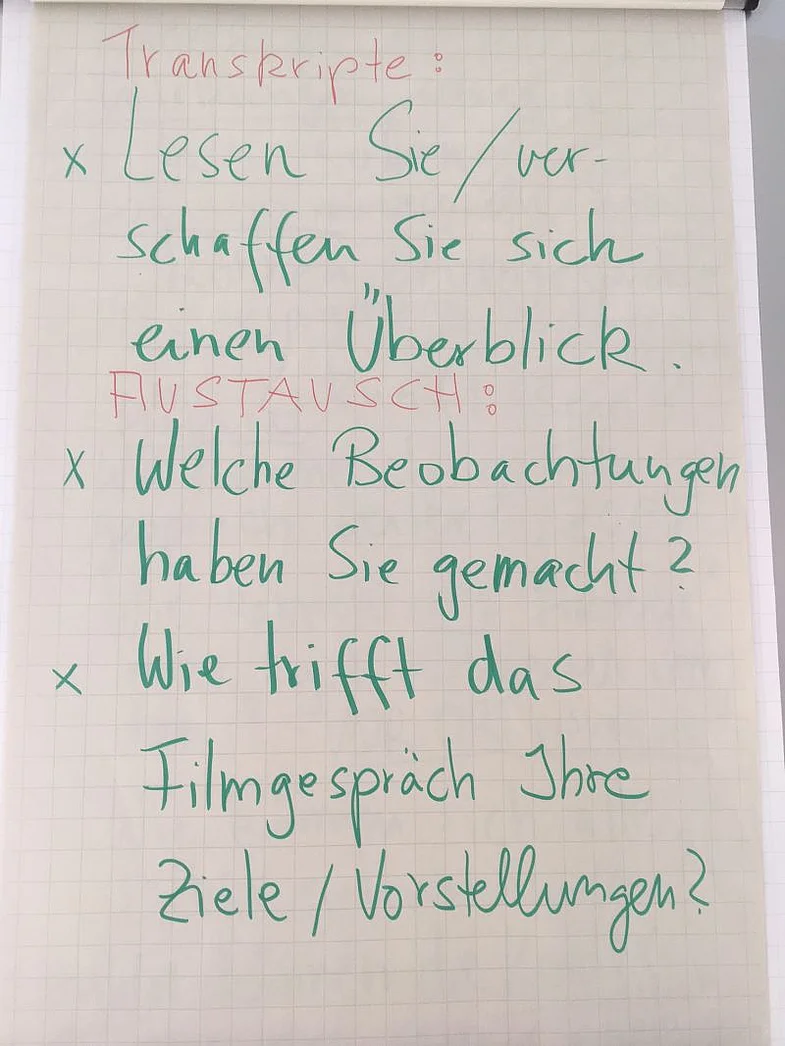 Transkripte:
x Lesen Sie / ver-
schaffen Sie sich
einen Überblick.
AUSTAUSCH:
x Welche Beobachtungen
haben Sie gemacht?
x Wie trifft das
Filmgespräch Ihre
Ziele / Vorstellungen?